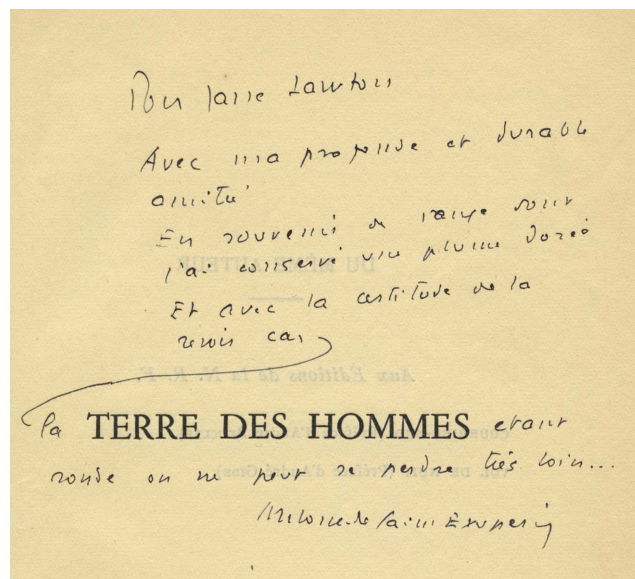 Pour Lawton
Avec ma profonde et durable
amitié
En souvenir de l'ange dont
j'ai conservé une plume dorée
Et avec la certitude de la
revoir car
la TERRE DES HOMMES etant
ronde on ne peut se perdre très loin...
Antoine de Saint Exupery
DU MÊME AUTEUR
Aux Éditions de la N. R. F.